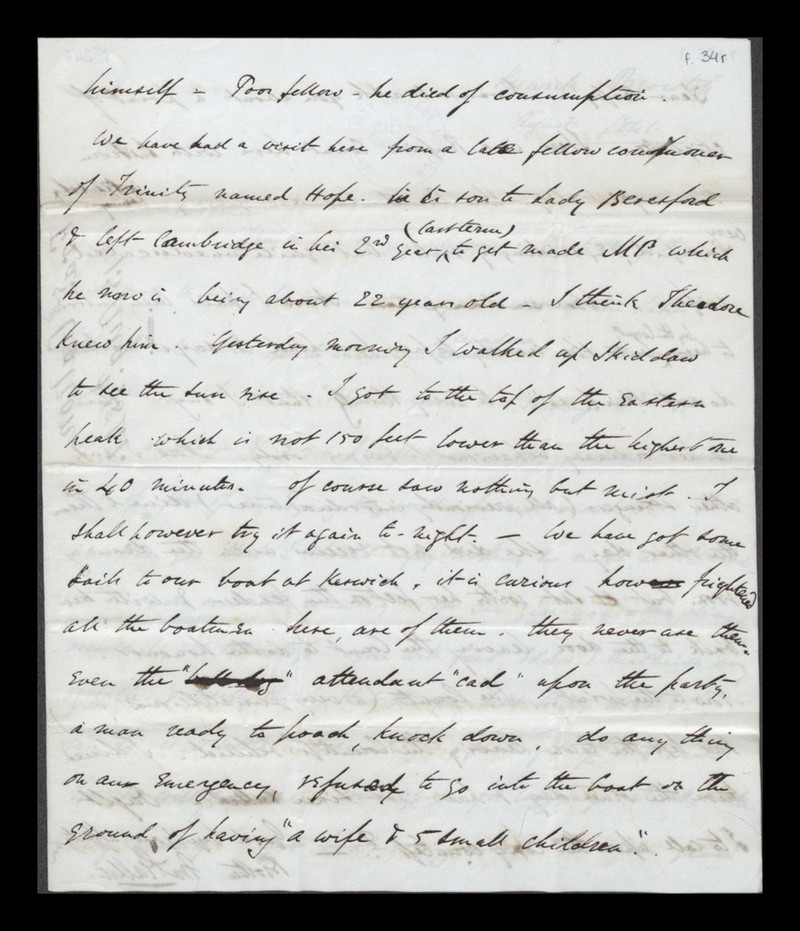 f. 34r
himself – Poor fellow – he died of consumption.
We have had a visit here from a late fellow commoner
of Trinity named Hope. is son to Lady Beresford
& left Cambridge in his 2nd year, (last term) to get made MP which
he now is being about 22 years old – I think Theodore
knew him. Yesterday morning I walked up Skiddaw
to see the sun rise. – I got to the top of the Eastern
peak which is not 150 feet lower than the highest one
in 40 minutes. of course saw nothing but mist. I
shall however try it again to-night. – We have got some
sails to our boat at Keswick, it is curious how frightened
all the boatmen here, are of them. they never use them.
Even the " " attendant "cad" upon the party,
a man ready to poach, knock down, do any thing
on any Emergency, refused to go into the boat on the
ground of having "a wife & 5 small children".